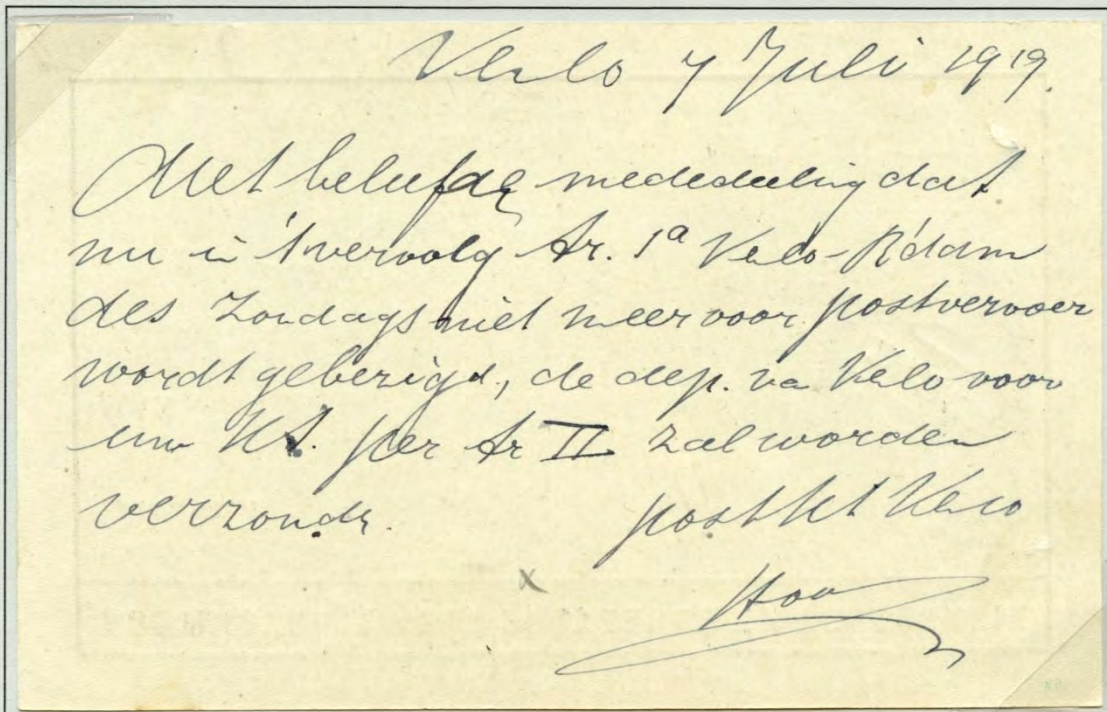 Venlo 7 Juli 1919.
Met beleefde mededeeling dat
nu in 't vervolg tr. 1a Venlo-R'dam
des Zondags niet meer voor postvervoer
wordt gebezigd, de dep. van Venlo voor
uw Kt. per tr II zal worden
verzonden.
postkt Venlo